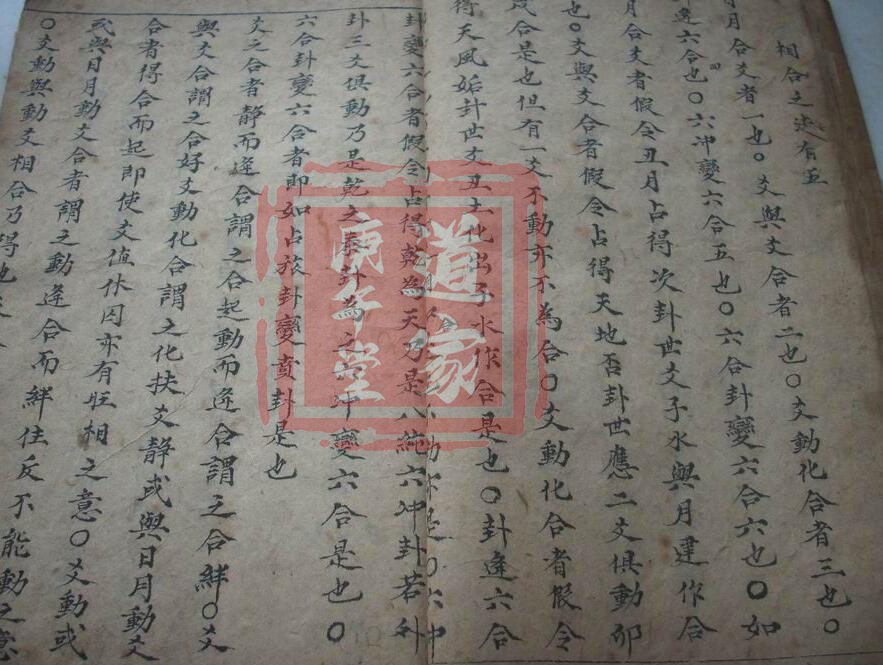 相合之法有五
月合爻者一也〇爻與爻合者二也〇爻動化合者三也〇
卦逢六合也〇六冲變六合五也〇六合卦變六合六也〇如
月合爻者假令丑月占得次卦世爻子水與月建作合
也〇爻與爻合者假令占得天地否卦世應二爻俱動卯
戌合是也但有一爻不動亦不為合〇爻動化合者假令
得天風姤卦世爻丑土化出子水作合是也〇卦逢六合
〇六冲
卦變六合者假令占得乾為天乃是八純六冲卦若外
卦三爻俱動乃是乾之泰卦為之六冲變六合是也〇
六合卦變六合者即如占旅卦變賁卦是也
爻之合者靜而逢合謂之合起動而逢合謂之合絆〇爻
與爻合謂之合好爻動化合謂之化扶爻靜或與日月動爻
合者得合而起即使爻值休囚亦有旺相之意〇爻動或
或與日月動爻合者謂之動逢合而絆住反不能動之意
〇爻動與動爻相合乃得他
道家
庚子堂